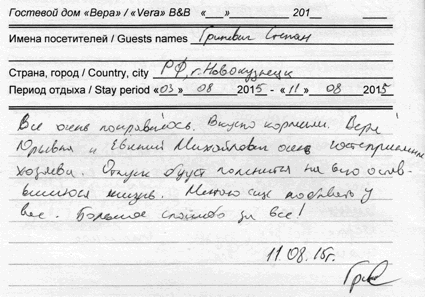 Гостевой дом «Вера» / «Vera» B&B «__» ________ 201__
Имена посетителей / Guests names Гриневич Степан
Страна, город / Country, city РФ, г. Новокузнецк
Период отдыха / Stay period «03» 08 2015 - «11» 08 2015
Все очень понравилось. Вкусно кормили. Вера
Юрьевна и Евгений Михайлович очень гостеприимные
хозяева. Отпуск будет помнится на всю остав-
вшиюся жизнь. Мечтаю еще побывать у
вас. Большое спасибо за все!
11.08.15г.